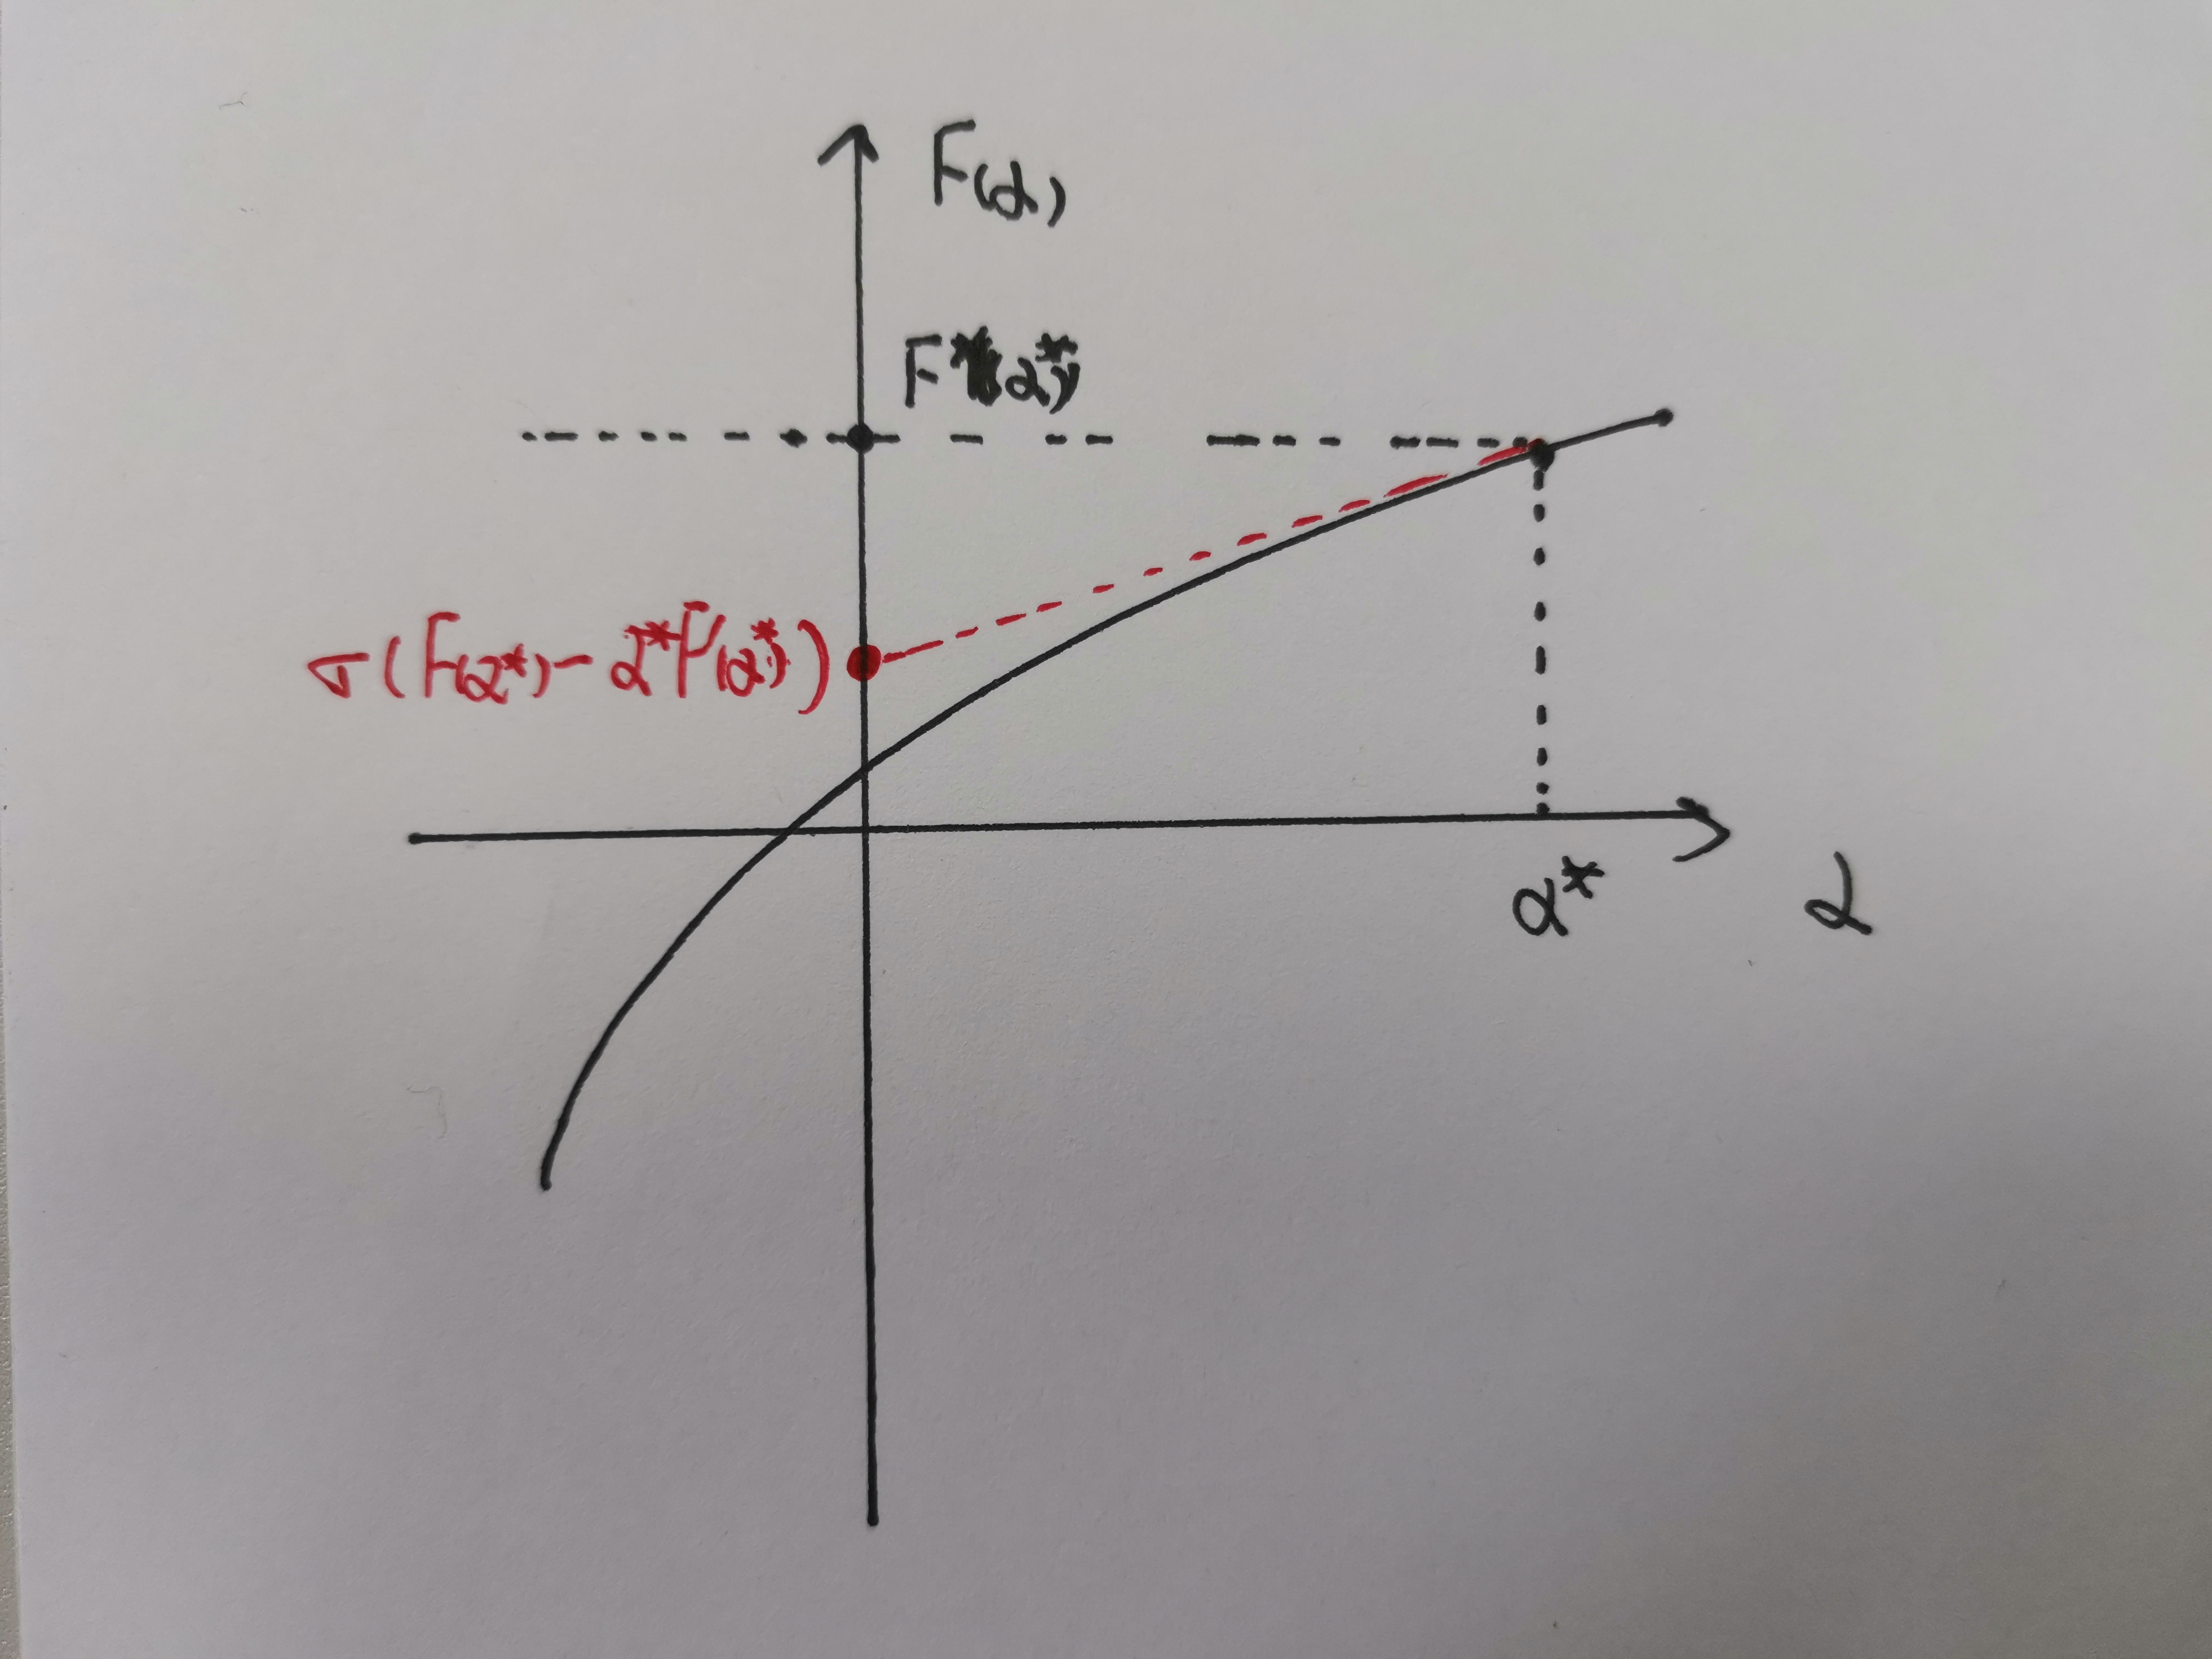 F(α)
F*(α*)
σ(F(α*)-α*F'(α*))
α*
α